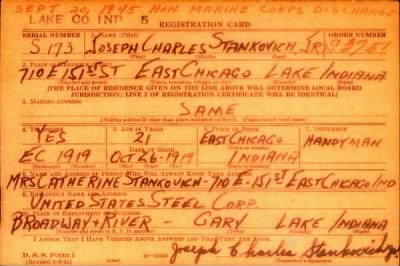 SEPT 20, 1945 HON MARINE CORPS DISCHARGE
LAKE CO IND 5
REGISTRATION CARD
SERIAL NUMBER 1. NAME (Print) ORDER NUMBER
S 173 JOSEPH CHARLES STANKOVICH, JR S 2251
2. PLACE OF RESIDENCE (Print)
710 E 151 ST EAST CHICAGO LAKE INDIANA
[THE PLACE OF RESIDENCE GIVEN ON THE LINE ABOVE WILL DETERMINE LOCAL BOARD
JURISDICTION; LINE 2 OF REGISTRATION CERTIFICATE WILL BE IDENTICAL]
3. MAILING ADDRESS
SAME
[Mailing address if other than place indicated on line 2. If same insert word same]
4. TELEPHONE 5. AGE IN YEARS 6. PLACE OF BIRTH 7. OCCUPATION
YES 21 EAST CHICAGO HANDYMAN
DATE OF BIRTH
EC 1919 OCT 26-1919 INDIANA
NAME AND ADDRESS OF PERSON WHO WILL ALWAYS KNOW YOUR ADDRESS
MRS CATHERINE STANKOVICH - 710 E - 151 ST EAST CHICAGO IND
EMPLOYER'S NAME AND ADDRESS
UNITED STATES STEEL CORP.
PLACE OF EMPLOYMENT OR BUSINESS
BROADWAY + RIVER - GARY LAKE INDIANA
I AFFIRM THAT I HAVE VERIFIED ABOVE ANSWERS AND THAT THEY ARE TRUE.
D. S. S. FORM 1 Joseph Charles Stankovich Jr.